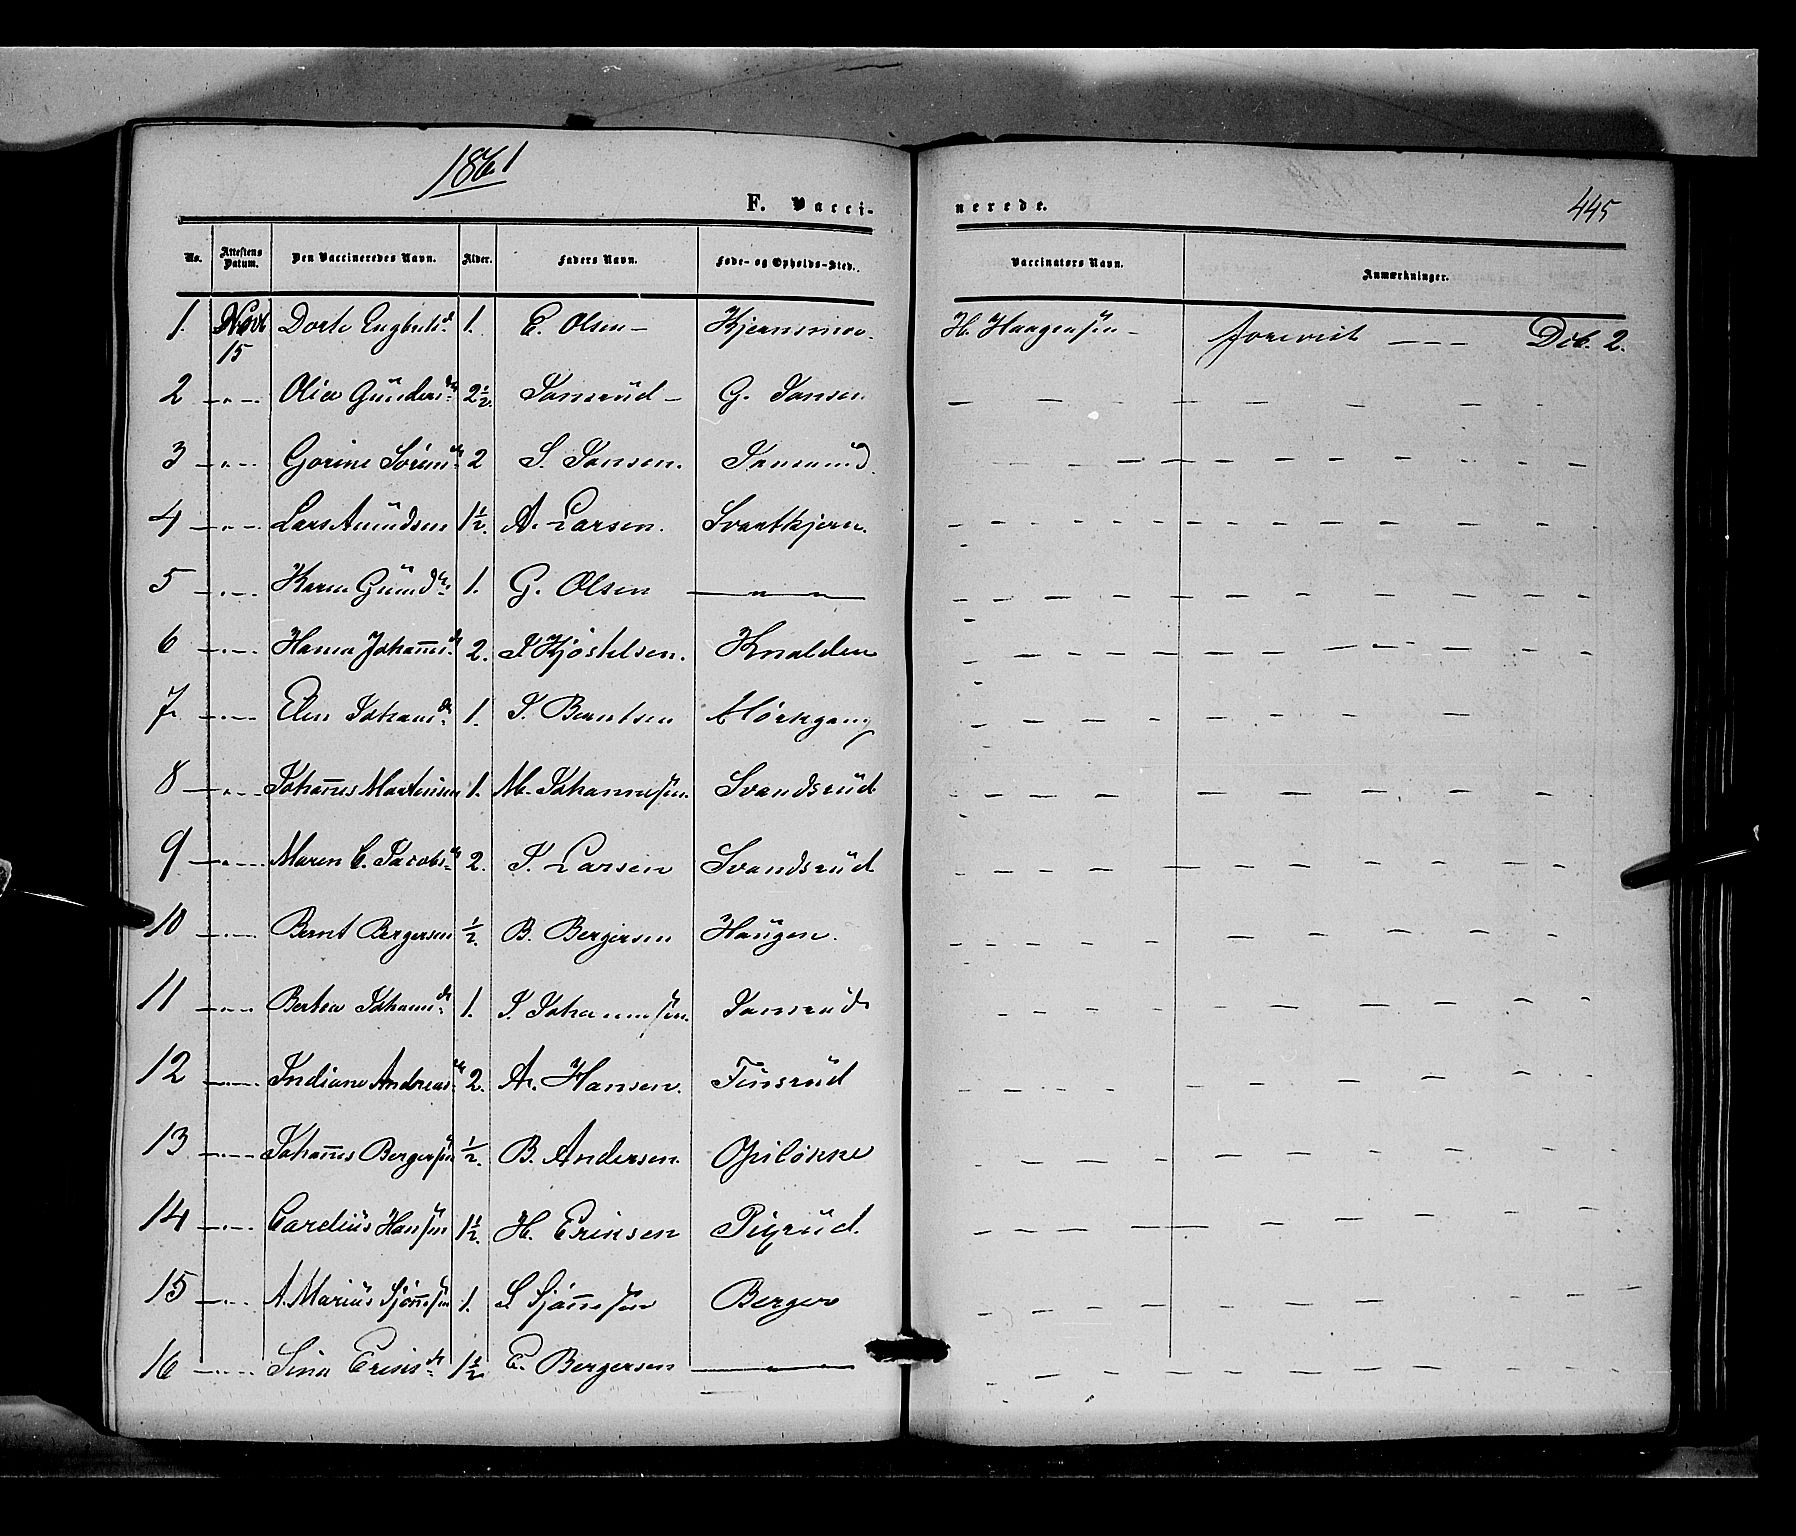 1861
445
F. Vacci- nerede.
No. Attestens Datum. Den Vaccineredes Navn. Alder. Faders Navn. Føde- og Opholds-Sted. Vaccinators Navn. Anmærkninger.
1. Novb 15 Dorte Engbrtsd 1. E. Olsen - H. Haagensen - forevist - - - Dcb. 2.
2 - " - Olia Gundersd 2½. Jansrud - G. Jansen
3 - " - Gorine Sørensd 2 S. Jansen. Jansrud
4 - " - Lars Amundsen 1½. A. Larsen. Svartkjern.
5 - " - Karen Gundd 1. G. Olsen - " -
6 - " - Hanna Johannsd 2. J Kjøstelsen. Knalden
7 - " - Elen Johansd 1. J. Berntsen Mørkgang
8 - " - Johannes Martinsen 1. M. Johannessen. Svandsrud
9 - " - Maren C. Jacobsd 2. J. Larsen Svandsrud
10 - " - Bernt Bergersen ½. B. Bergersen Haugen.
11 - " - Bertea Johannsd 1. J. Johannessen. Jansrud
12 - " - Indiane Andreasd 2. A. Hansen. Finsrud
13 - " - Johannes Bergersen ½. B. Andersen.
14 - " - Carelius Hansen 1½. H. Eriksen Pigrud.
15 - " - A. Marius Sjønnesen 1. S Sjønnesen Berger
16 - " - Sina Eriksd 1½ E. Bergersen - " -